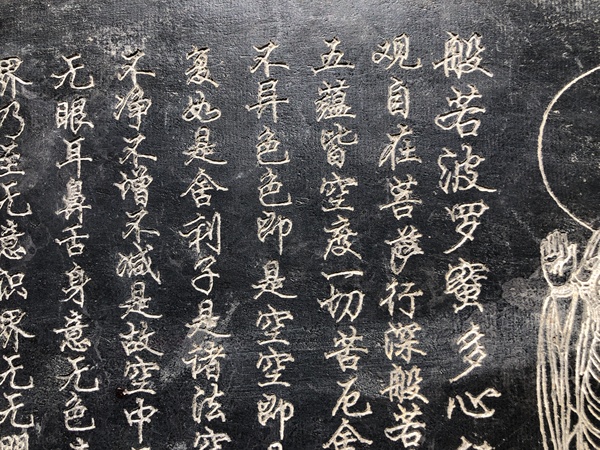 般若波罗蜜多心
观自在菩萨行深般若
五蘊皆空度一切苦厄舍
不异色色即是空空即
复如是舍利子是诸法空
不净不增不减是故空中
无眼耳鼻舌身意无色
界乃至无意识界无无明